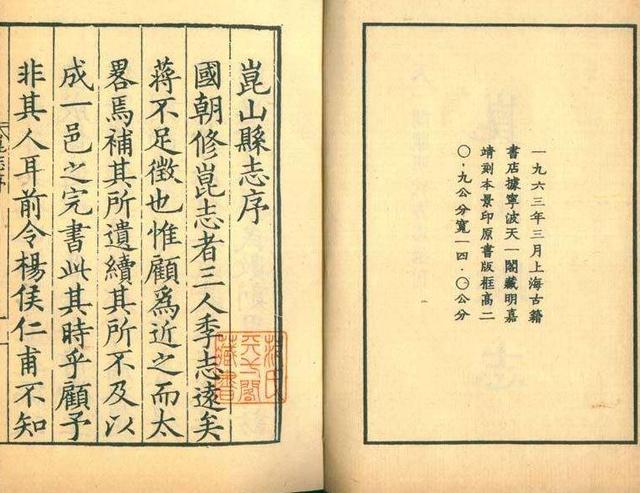 一九六三年三月上海古籍
書店據寧波天一閣藏明嘉
靖刻本景印原書版框高二
〇·九公分寬一四·〇公分
崑山縣志序
國朝修崑志者三人季志遠矣
蔣不足徵也惟顧爲近之而太
畧焉補其所遺續其所不及以
成一邑之完書此其時乎顧予
非其人耳前令楊侯仁甫不知
范氏
天一閣
藏書